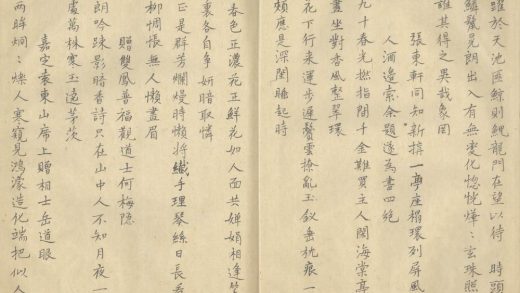 躍於天池匪鯨則鯉龍門在望以待 時頭
鱗鬣晃朗出入有無變化惚恍燁〻玄珠照
誰其得之吳哉象罔
張東軒同知新搆一亭座榻環列屏風
人酒邊索余題遂為書四絶
九十春光撚指間千金難買主人閑海棠亭
畫坐對香風整翠環
花下行來運步遲鬢雲撩亂玉釵垂枕痕一
頰應是深閨睡起時
春色正濃花正鮮花如人面共嬋娟相逢
裏各自爭妍暗取憐
正是群芳爛熳時懶將纖手理琴絲日長
柳惆悵無人懶畫眉
贈雙鳳普福觀道士何梅隱
朗吟踈影暗香詩只在山中人不知月夜一
處萬株寒玉遶茅茨
嘉定袁東山席上贈相士岳道眼
兩眸烱〻燦人寒窺見鴻濛造化端把似人